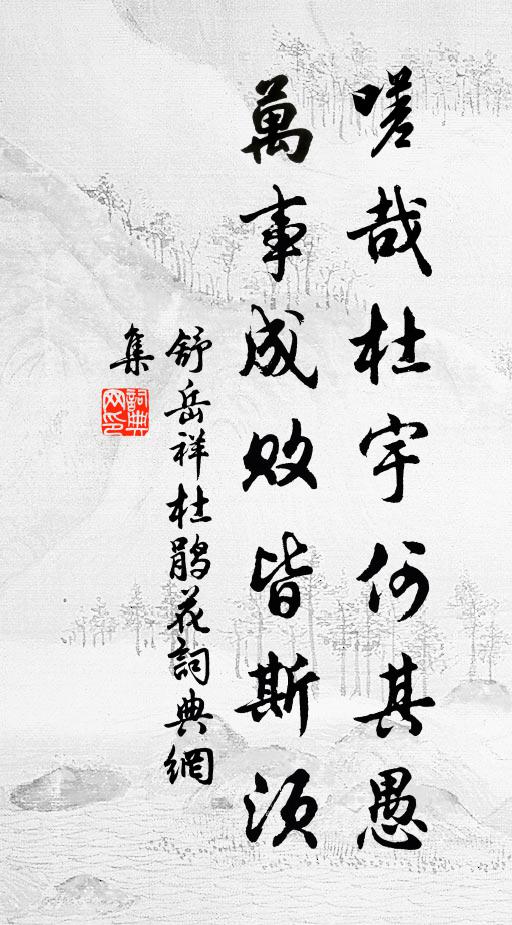 嗟哉杜宇何其愚
萬事成敗皆斯須
舒岳祥杜鹃花詞典網
集
詞典
网印